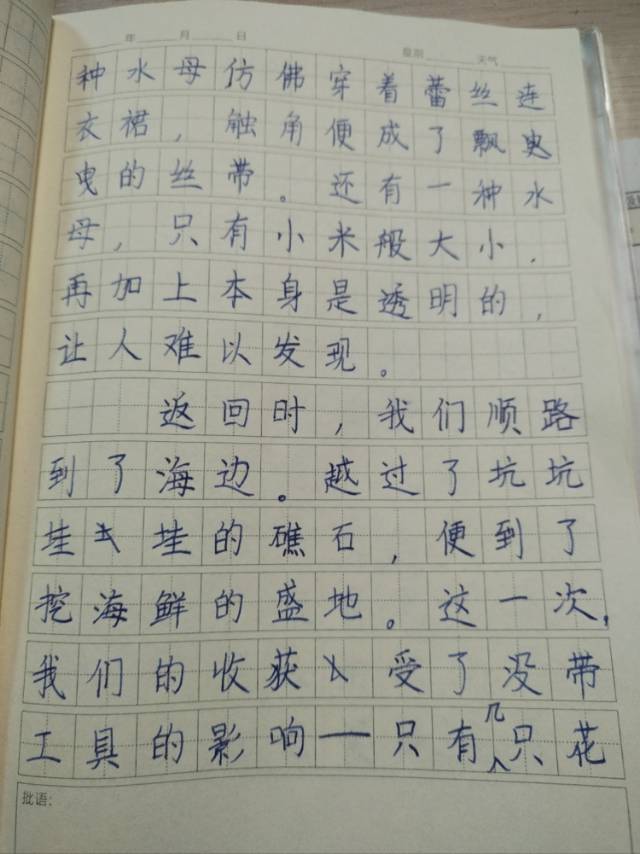 年 月 日 星期 天气
种水母仿佛穿着蕾丝连
衣裙，触角便成了飘曳
曳的丝带。还有一种水
母，只有小米般大小，
再加上本身是透明的，
让人难以发现。
返回时，我们顺路
到了海边。越过了坑坑
洼洼的礁石，便到了
挖海鲜的盛地。这一次，
我们的收获受了没带
工具的影响一只有几只花
批语：